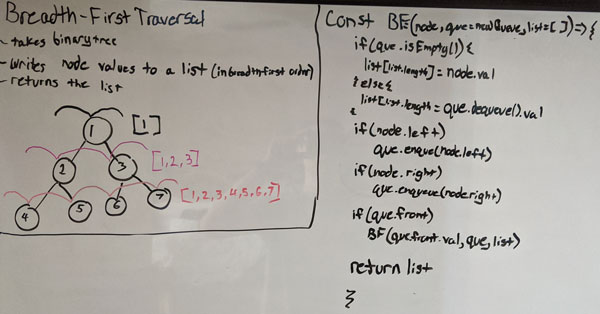 Breadth-First Traversal
- takes binary tree
- writes node values to a list (in breadth-first order)
- returns the list
1 [1]
2 3 [1,2,3]
4 5 6 7 [1,2,3,4,5,6,7]
Const BF(node, que=new Queue, list=[ ])=> {
if(que.isEmpty()){
list[list.length]=node.val
} else {
list[list.length = que.dequeue().val
}
if(node.left)
que.enque(node.left)
if(node.right)
que.enqueue(node.right)
if(que.front)
BF(que.front.val, que, list)
return list
}